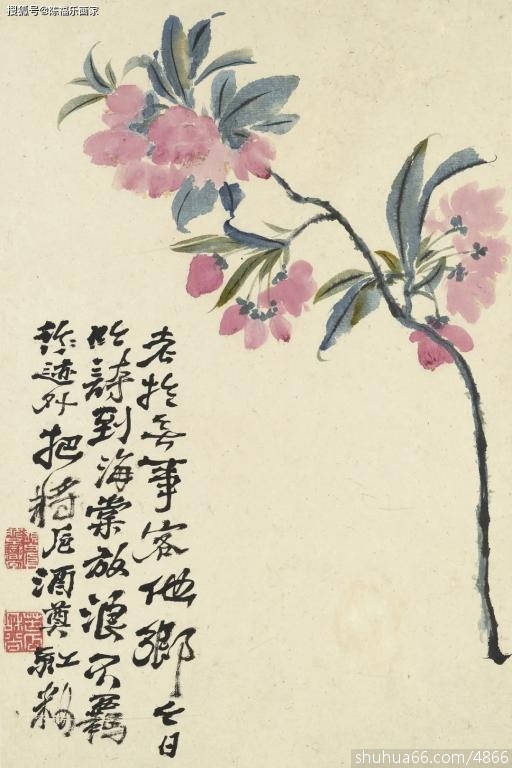 搜狐号@陈福乐画家
老於無事客他鄉今日
吟詩到海棠放浪不羈
形迹外把將卮酒奠紅
shuhua66.com/4866